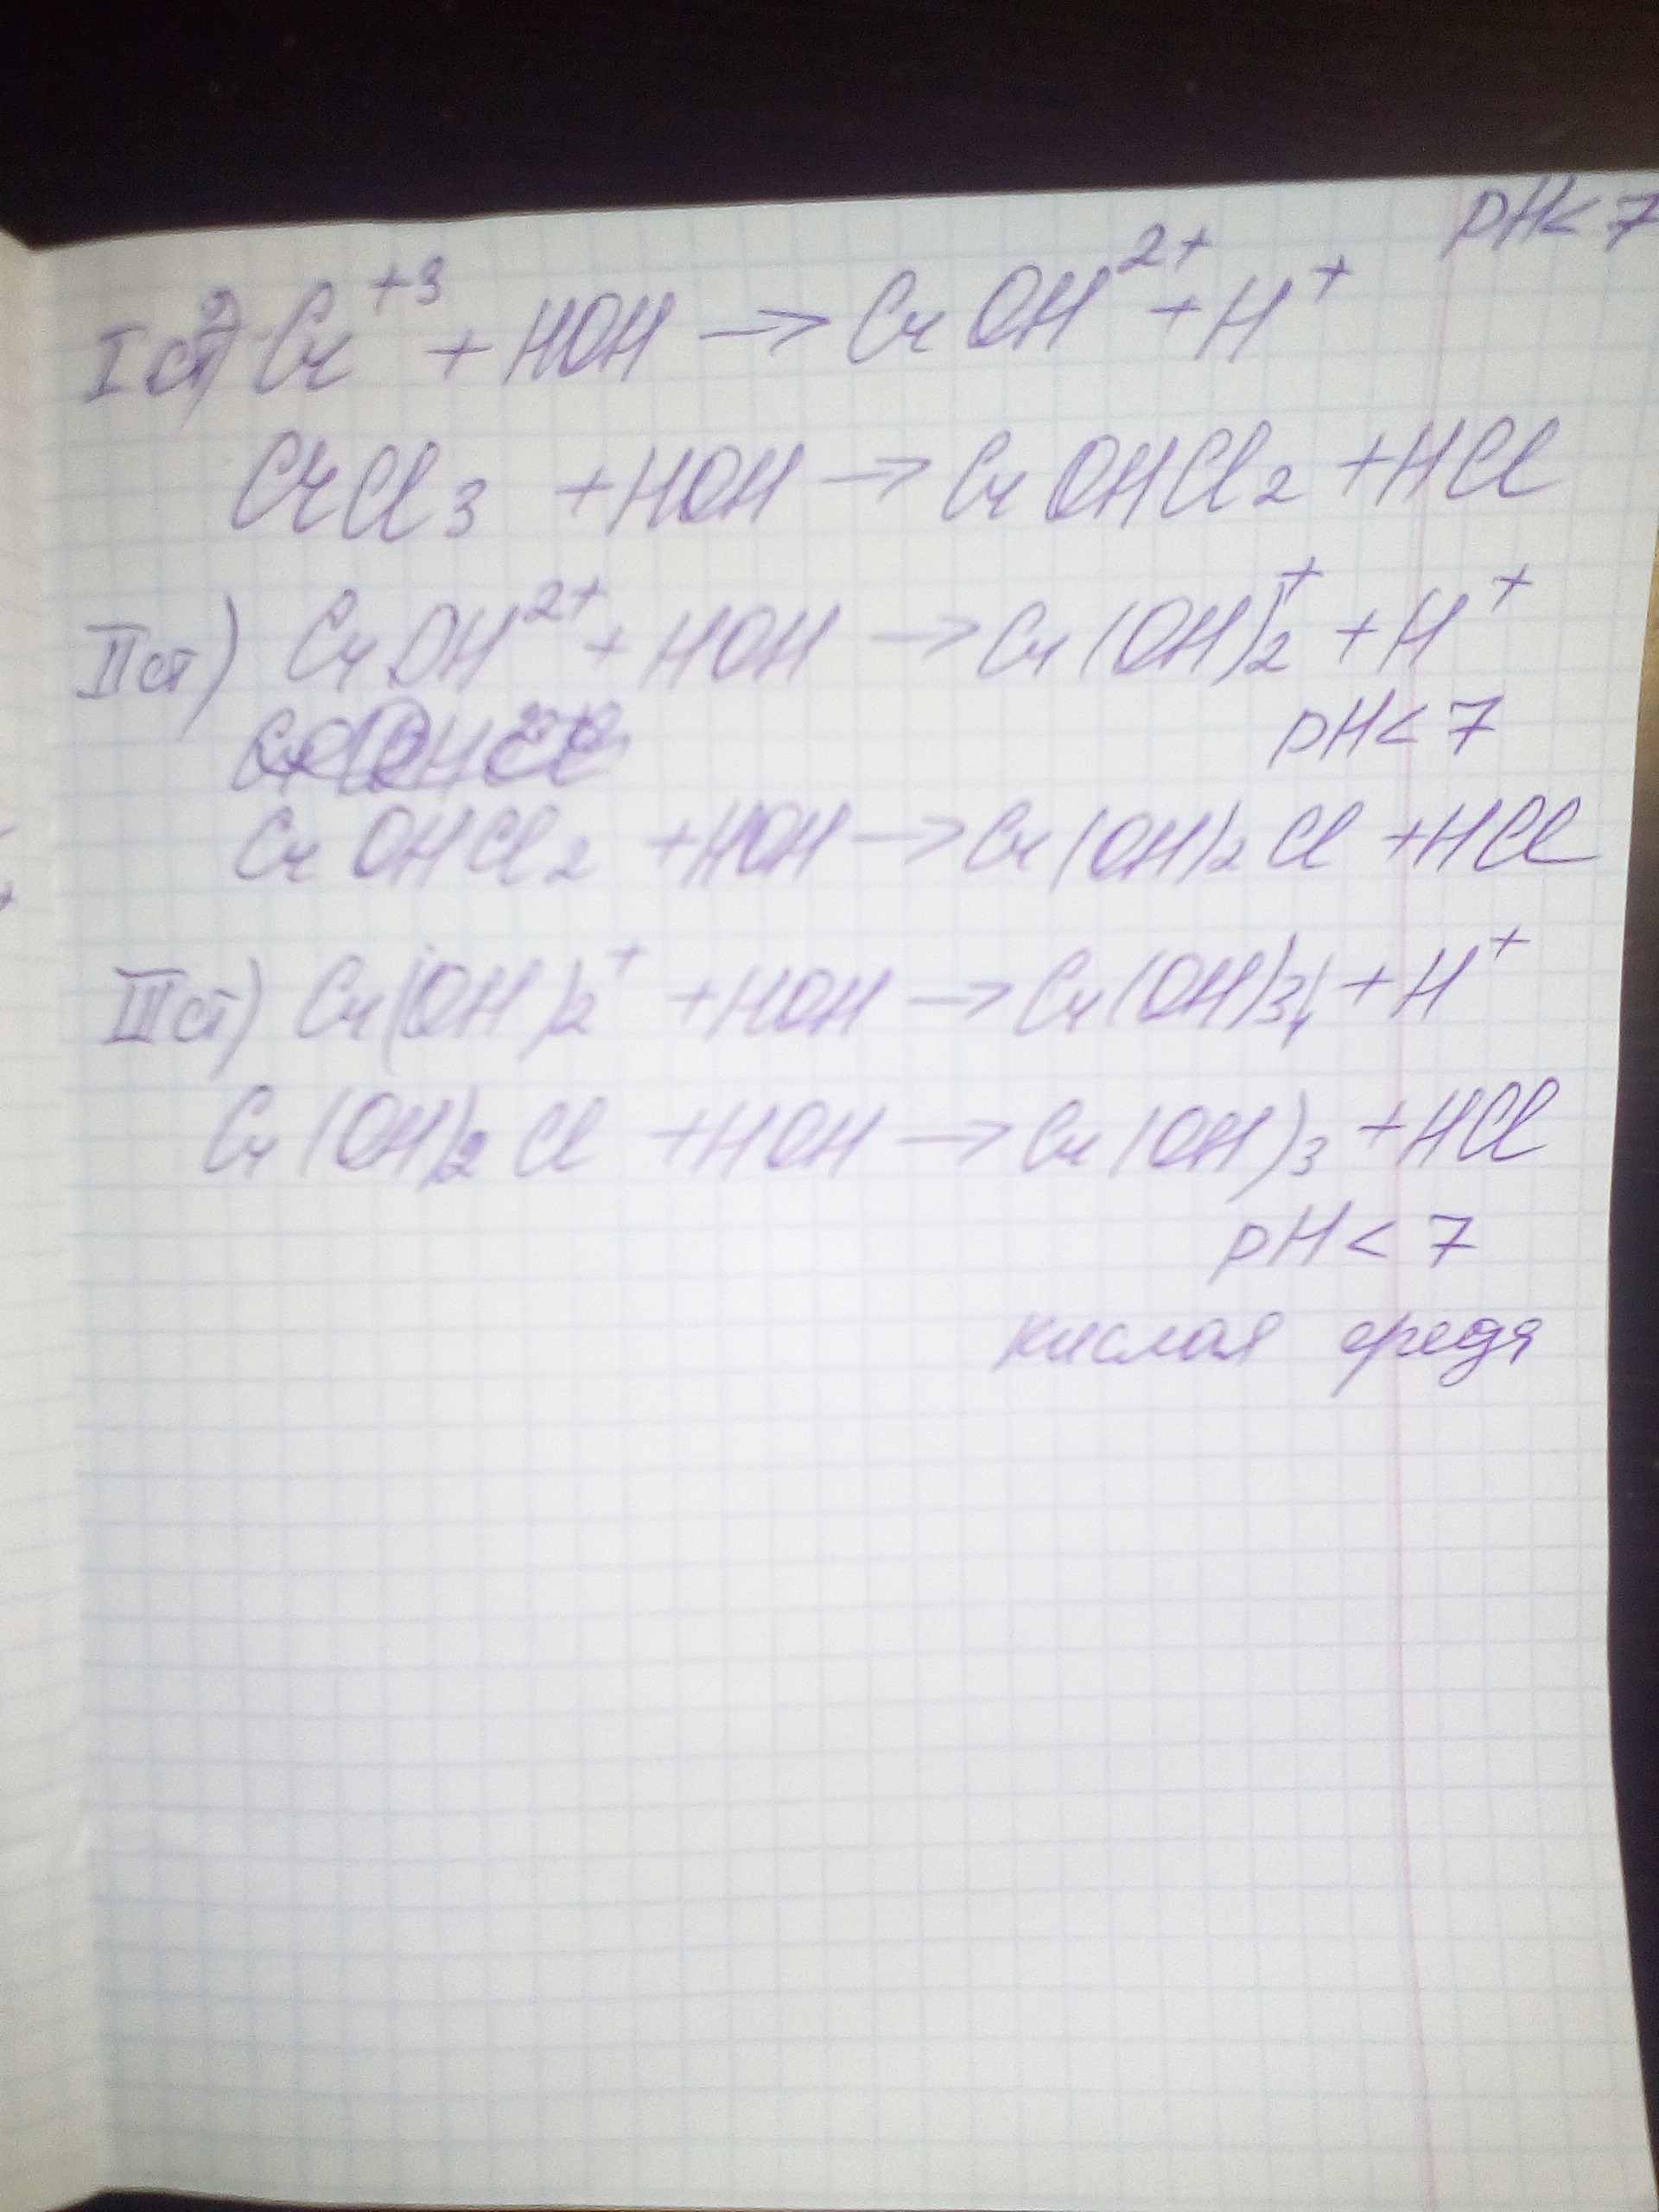 pH < 7
I ст) Cr⁺³ + HOH → CrOH²⁺ + H⁺
CrCl₃ + HOH → CrOHCl₂ + HCl
II ст) CrOH²⁺ + HOH → Cr(OH)₂⁺ + H⁺
pH < 7
CrOHCl₂ + HOH → Cr(OH)₂Cl + HCl
III ст) Cr(OH)₂⁺ + HOH → Cr(OH)₃↓ + H⁺
Cr(OH)₂Cl + HOH → Cr(OH)₃ + HCl
pH < 7
кислая среда